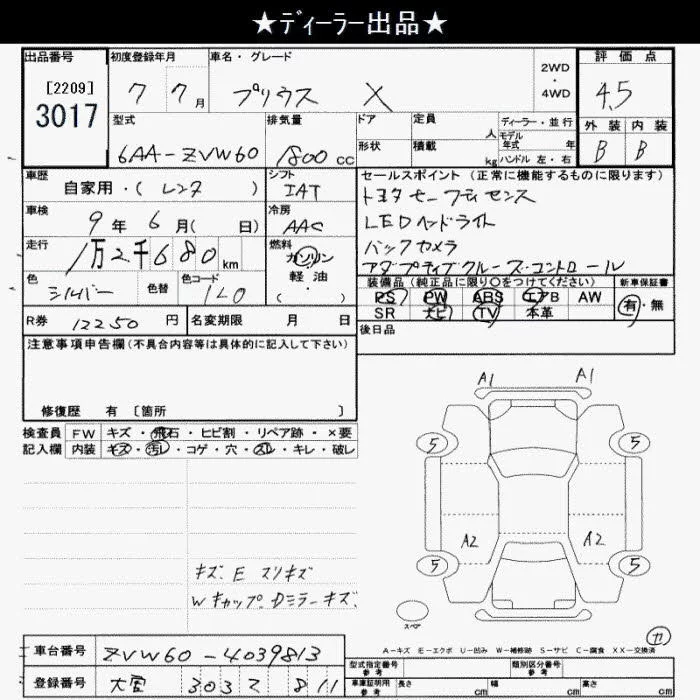 ★ディーラー出品★
出品番号 初度登録年月 車名・グレード 2WD・4WD 評価点
[2209] 3017 7 7月 プリウス X 4.5
型式 排気量 ドア 定員 人 ディーラー・並行 外装 内装
6AA-ZVW60 1800 CC 形状 積載 kg モデル年式 年 ハンドル 左・右 B B
車歴 シフト セールスポイント (正常に機能するものに限ります)
自家用・( レンタ ) IAT トヨタセーフティセンス
車検 冷房 LEDヘッドライト
9年6月( 日) AAC バックカメラ
走行 燃料 アダプティブクルーズ・コントロール
1万2千680 km ガソリン・軽油・( )
色 色替 色コード 装備品 (純正品に限り○をつけてください) 新車保証書
シルバー 1L0 PS PW ABS エアB AW 有・無
SR ナビ TV 本革
R券 12250 円 名変期限 月 日 後日品
注意事項申告欄 (不具合内容等は具体的に記入して下さい)
修復歴 有 〔箇所 〕
A1 A1
検査員 FW キズ・飛石・ヒビ割・リペア跡・×要
記入欄 内装 キズ・汚レ・コゲ・穴・スレ・キレ・破レ
5 5
A2 A2
5 5
キズ.E スリキズ
Wキャップ.Dミラーキズ.
スペア
カ
A-キズ E-エクボ U-凹み W-補修跡 S-サビ C-腐食 XX-交換済
車台番号 ZVW60-4039813
型式指定番号 参考 類別区分番号 参考
登録番号 303 811
車庫証明用 参考 長さ cm 幅 cm 高さ cm